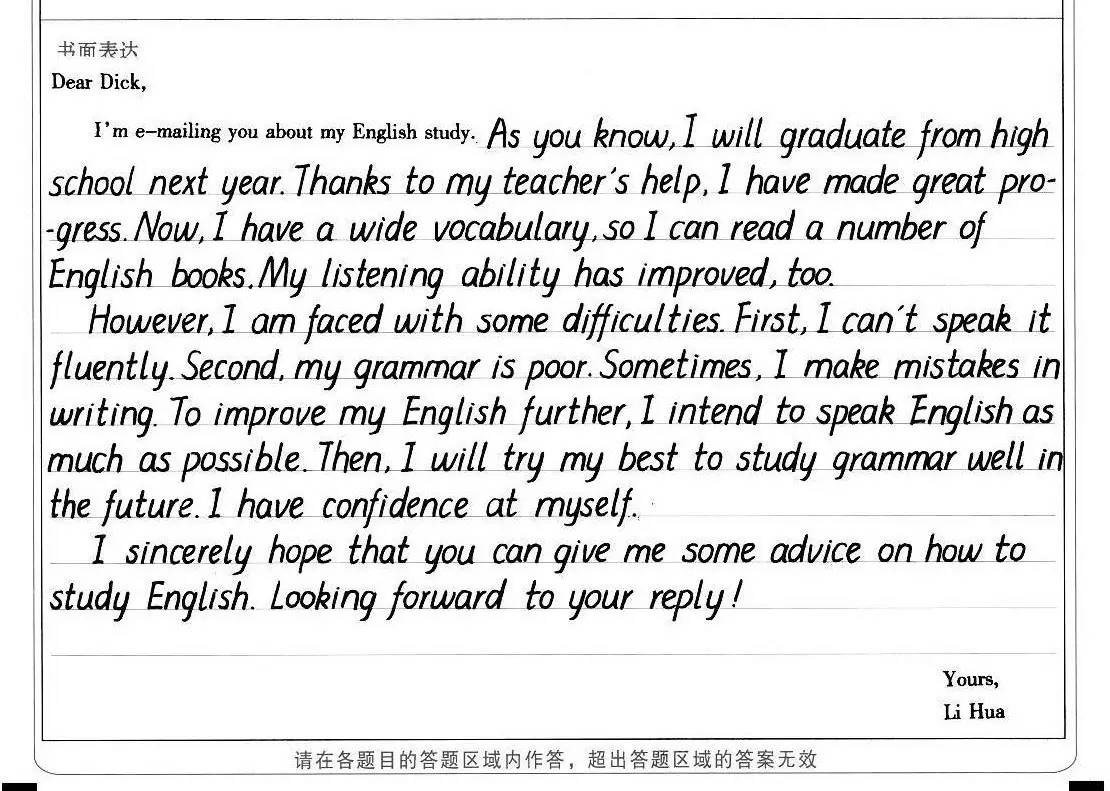 书面表达
Dear Dick,
I'm e-mailing you about my English study. As you know, I will graduate from high
school next year. Thanks to my teacher's help, I have made great pro-
-gress. Now, I have a wide vocabulary, so I can read a number of
English books. My listening ability has improved, too.
However, I am faced with some difficulties. First, I can't speak it
fluently. Second, my grammar is poor. Sometimes, I make mistakes in
writing. To improve my English further, I intend to speak English as
much as possible. Then, I will try my best to study grammar well in
the future. I have confidence at myself.
I sincerely hope that you can give me some advice on how to
study English. Looking forward to your reply!
Yours,
Li Hua
请在各题目的答题区域内作答，超出答题区域的答案无效